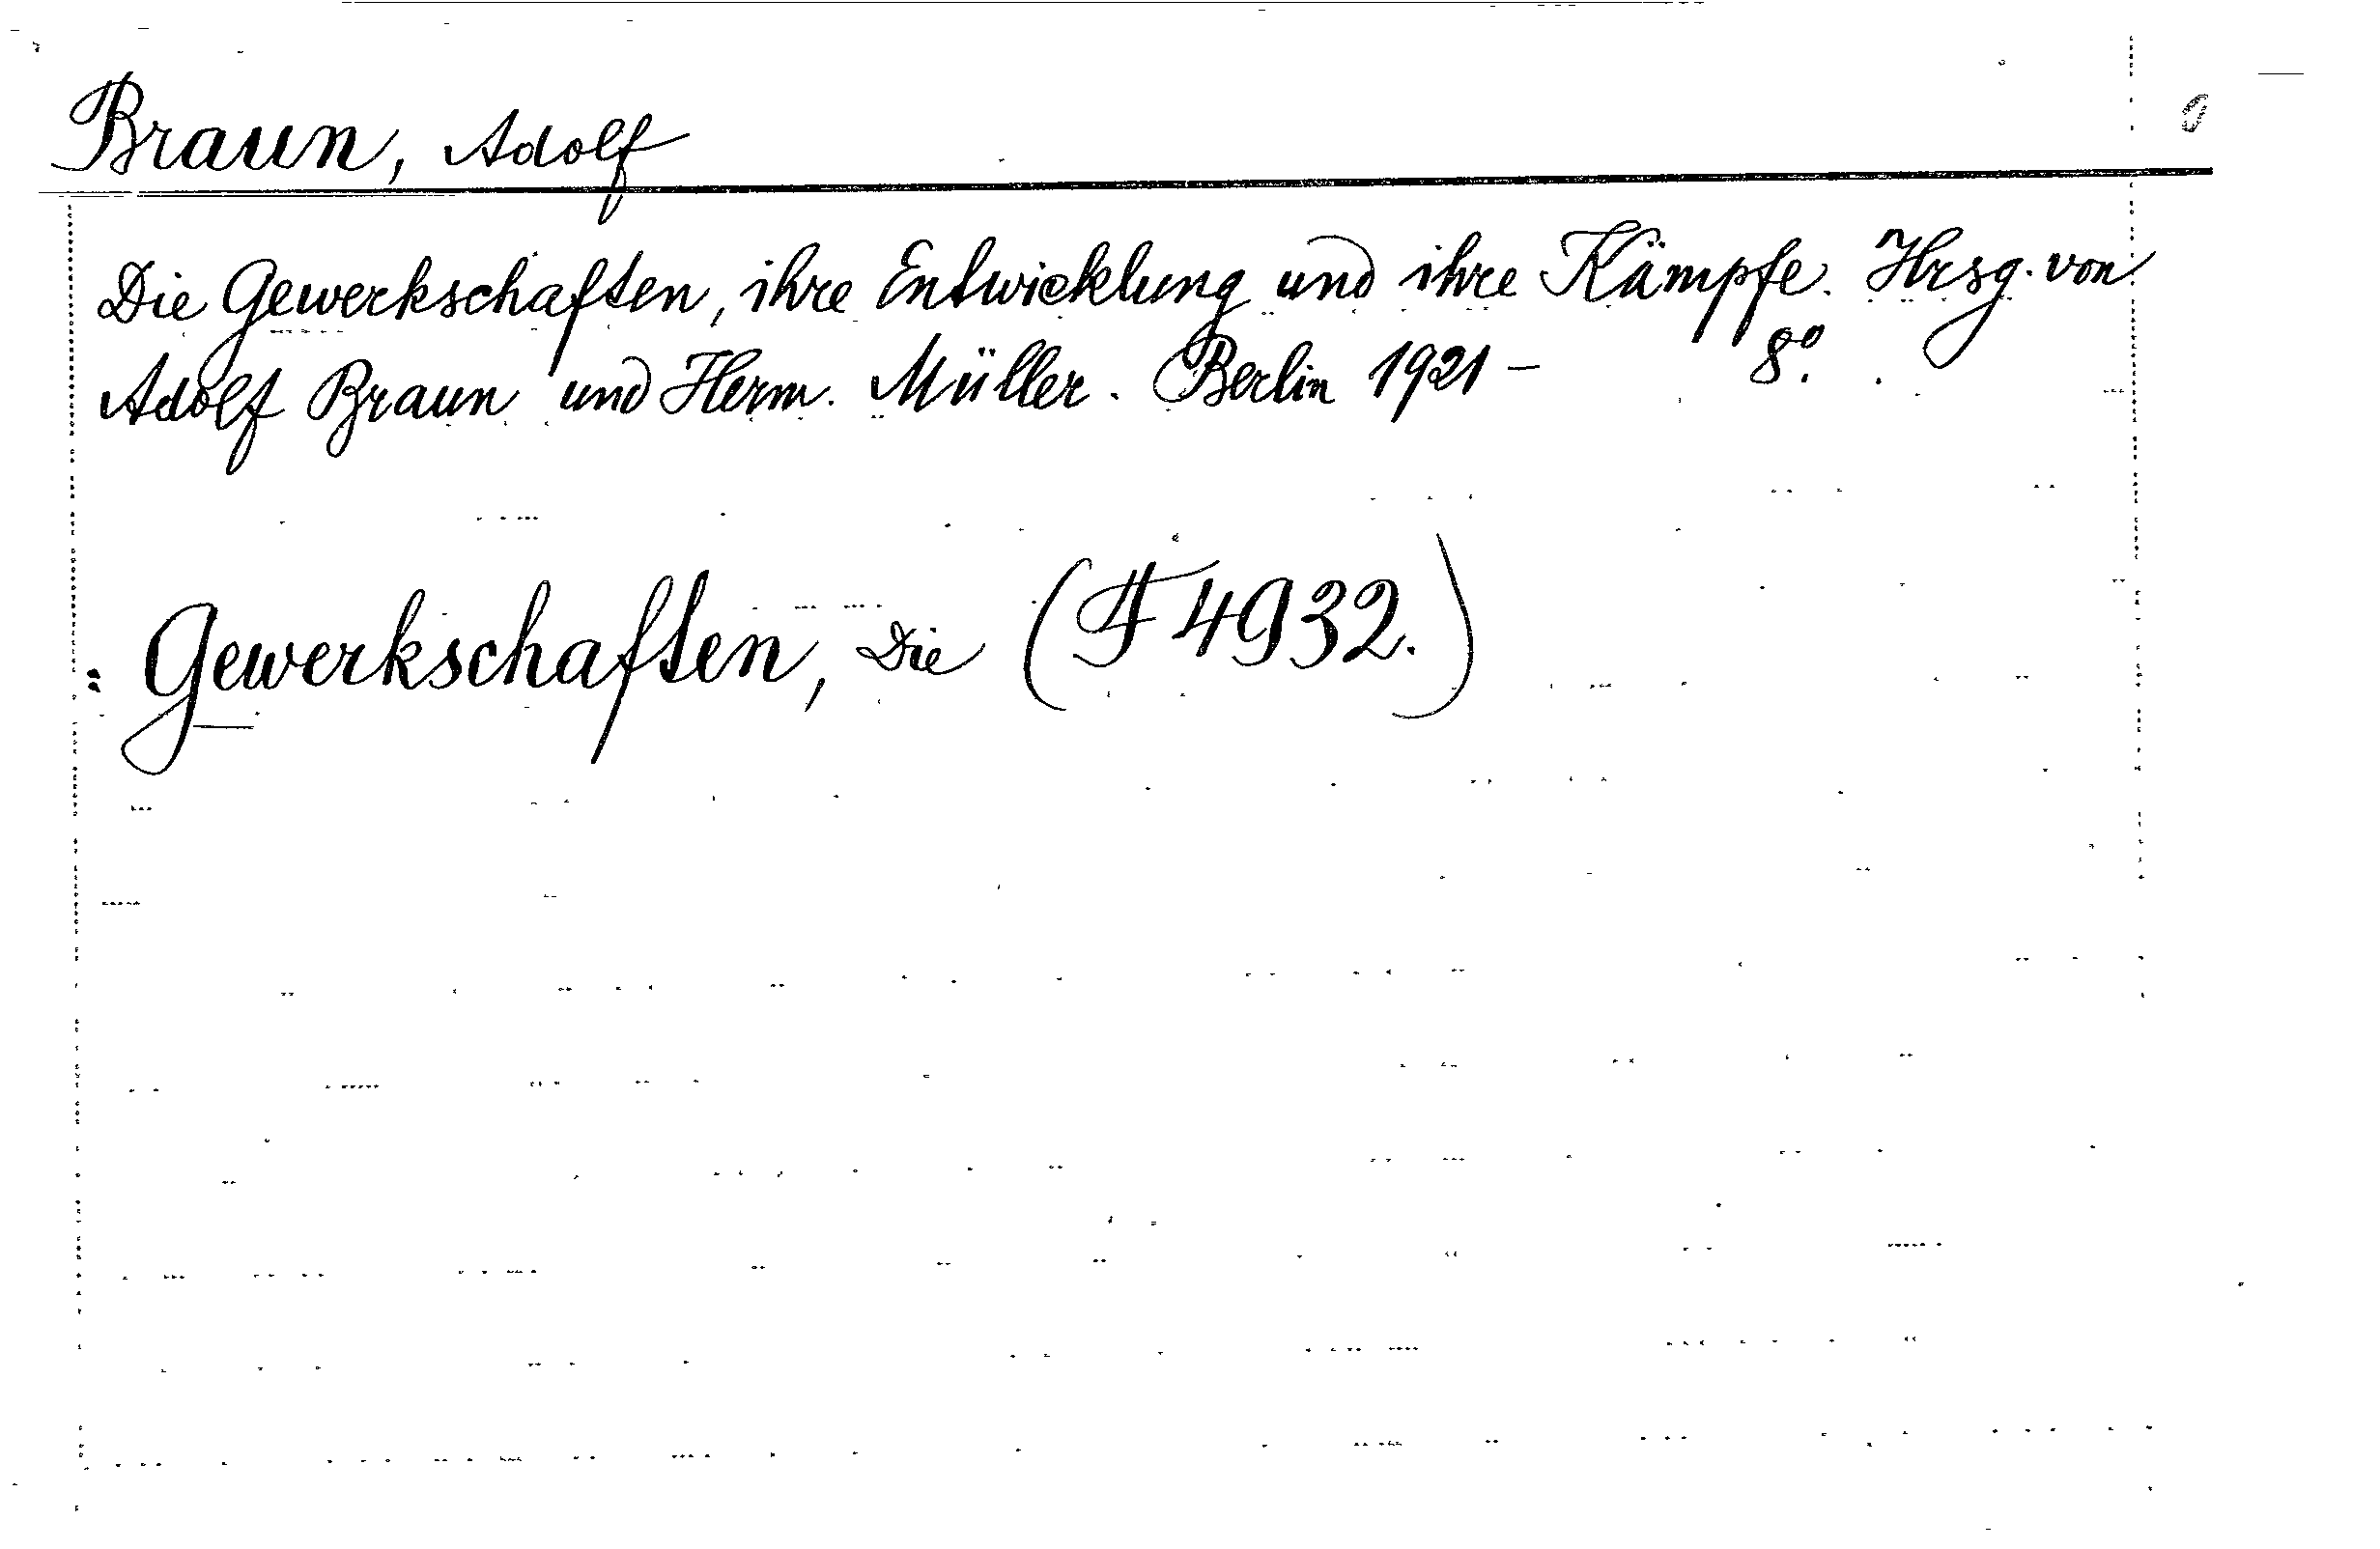 Braun, Adolf
Die Gewerkschaften, ihre Entwicklung und ihre Kämpfe. Hrsg. von
Adolf Braun und Herm. Müller. Berlin 1921 – 8°.
: Gewerkschaften, Die (F 4932.)